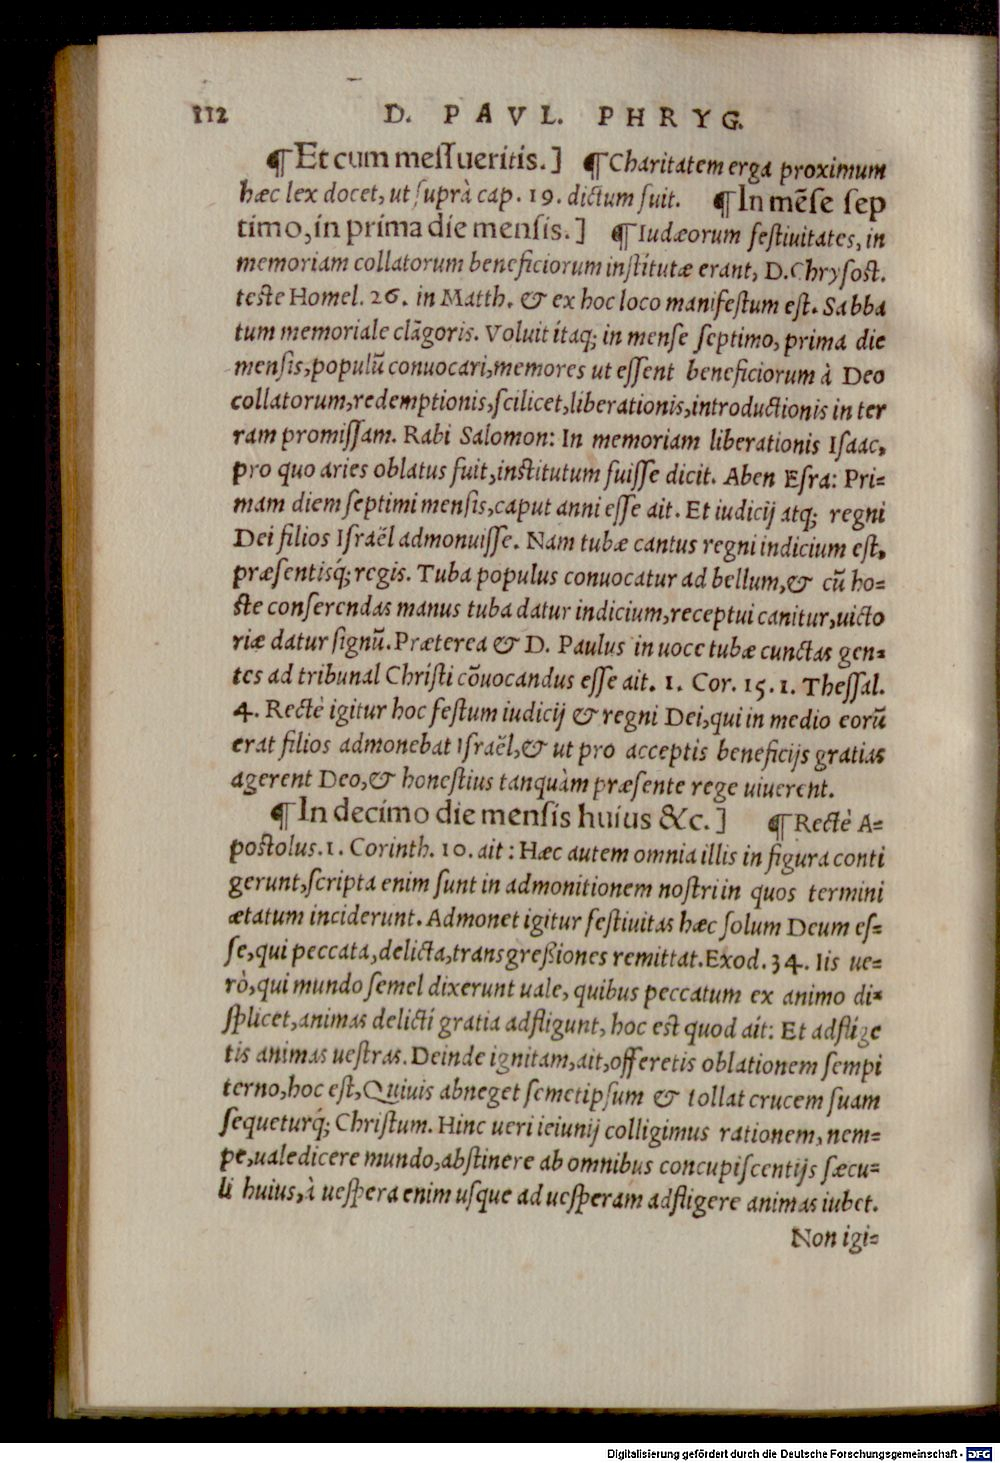 112 D. PAVL. PHRYG.
¶Et cum messueritis.] ¶Charitatem erga proximum
hæc lex docet, ut suprà cap. 19. dictum fuit. ¶In mẽse sep
timo, in prima die mensis.] ¶Iudæorum festiuitates, in
memoriam collatorum beneficiorum institutæ erant, D. Chrysost.
teste Homel. 26. in Matth. & ex hoc loco manifestum est. Sabba
tum memoriale clãgoris. Voluit itaq; in mense septimo, prima die
mensis, populũ conuocari, memores ut essent beneficiorum à Deo
collatorum, redemptionis, scilicet, liberationis, introductionis in ter
ram promissam. Rabi Salomon: In memoriam liberationis Isaac,
pro quo aries oblatus fuit, institutum fuisse dicit. Aben Esra: Pri=
mam diem septimi mensis, caput anni esse ait. Et iudicij atq; regni
Dei filios Israël admonuisse. Nam tubæ cantus regni indicium est,
præsentisq́; regis. Tuba populus conuocatur ad bellum, & cũ ho=
ste conserendas manus tuba datur indicium, receptui canitur, uicto
riæ datur signũ. Præterea & D. Paulus in uoce tubæ cunctas gen=
tes ad tribunal Christi cõuocandus esse ait. 1. Cor. 15. 1. Thessal.
4. Rectè igitur hoc festum iudicij & regni Dei, qui in medio eorũ
erat filios admonebat Israël, & ut pro acceptis beneficijs gratias
agerent Deo, & honestius tanquàm præsente rege uiuerent.
¶In decimo die mensis huius &c.] ¶Rectè A=
postolus. 1. Corinth. 10. ait: Hæc autem omnia illis in figura conti
gerunt, scripta enim sunt in admonitionem nostri in quos termini
ætatum inciderunt. Admonet igitur festiuitas hæc solum Deum es=
se, qui peccata, delicta, transgreßiones remittat. Exod. 34. Iis ue=
rò, qui mundo semel dixerunt uale, quibus peccatum ex animo di=
splicet, animas delicti gratia adfligunt, hoc est quod ait: Et adflige
tis animas uestras. Deinde ignitam, ait, offeretis oblationem sempi
terno, hoc est, Quiuis abneget semetipsum & tollat crucem suam
sequeturq́; Christum. Hinc ueri ieiunij colligimus rationem, nem=
pe, ualedicere mundo, abstinere ab omnibus concupiscentijs sæcu=
li huius, à uespera enim usque ad uesperam adfligere animas iubet.
Non igi=
Digitalisierung gefördert durch die Deutsche Forschungsgemeinschaft - DFG